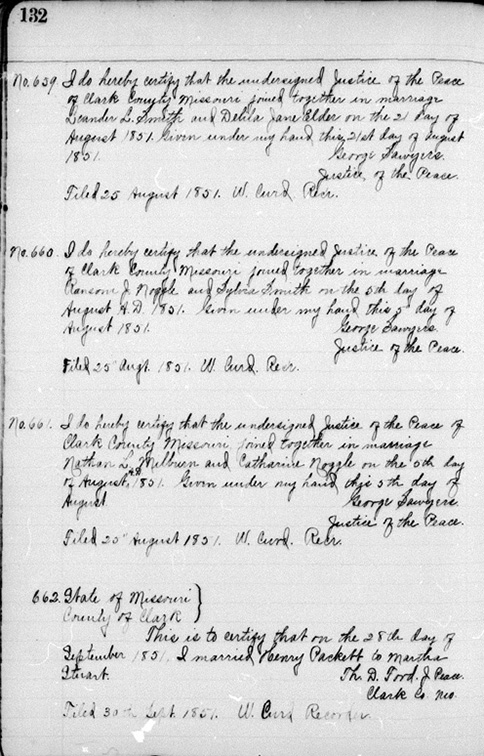 132
No. 639 I do hereby certify that the undersigned Justice of the Peace
of Clark County Missouri joined together in marriage
Leander L. Smith and Delila Jane Elder on the 21 day of
August 1851. Given under my hand this 21st day of august
1851. George Sawyers.
Justice of the Peace.
Filed 25 August 1851. W. Curd. Recr.
No. 660. I do hereby certify that the undersigned Justice of the Peace
of Clark County Missouri joined together in marriage
Ransom J. Noggle and Sylvia Smith on the 5th day of
August A.D. 1851. Given under my hand this 5 day of
August 1851. George Sawyers.
Justice of the Peace.
Filed 25" Augt. 1851. W. Curd. Recr.
No. 661. I do hereby certify that the undersigned Justice of the Peace of
Clark County Missouri joined together in marriage
Nathan L. Milburn and Catharine Noggle on the 5th day
of August, AD 1851. Given under my hand this 5th day of
August George Sawyers.
Justice of the Peace.
Filed 25" August 1851. W. Curd. Recr.
662. State of Missouri }
County of Clark
This is to certify that on the 28th day of
September 1851. I married Henry Packett to Martha
Stuart. Th. D. Ford. J. Peace.
Clark Co. Mo.
Filed 30th Sept. 1851. W. Curd Recorder